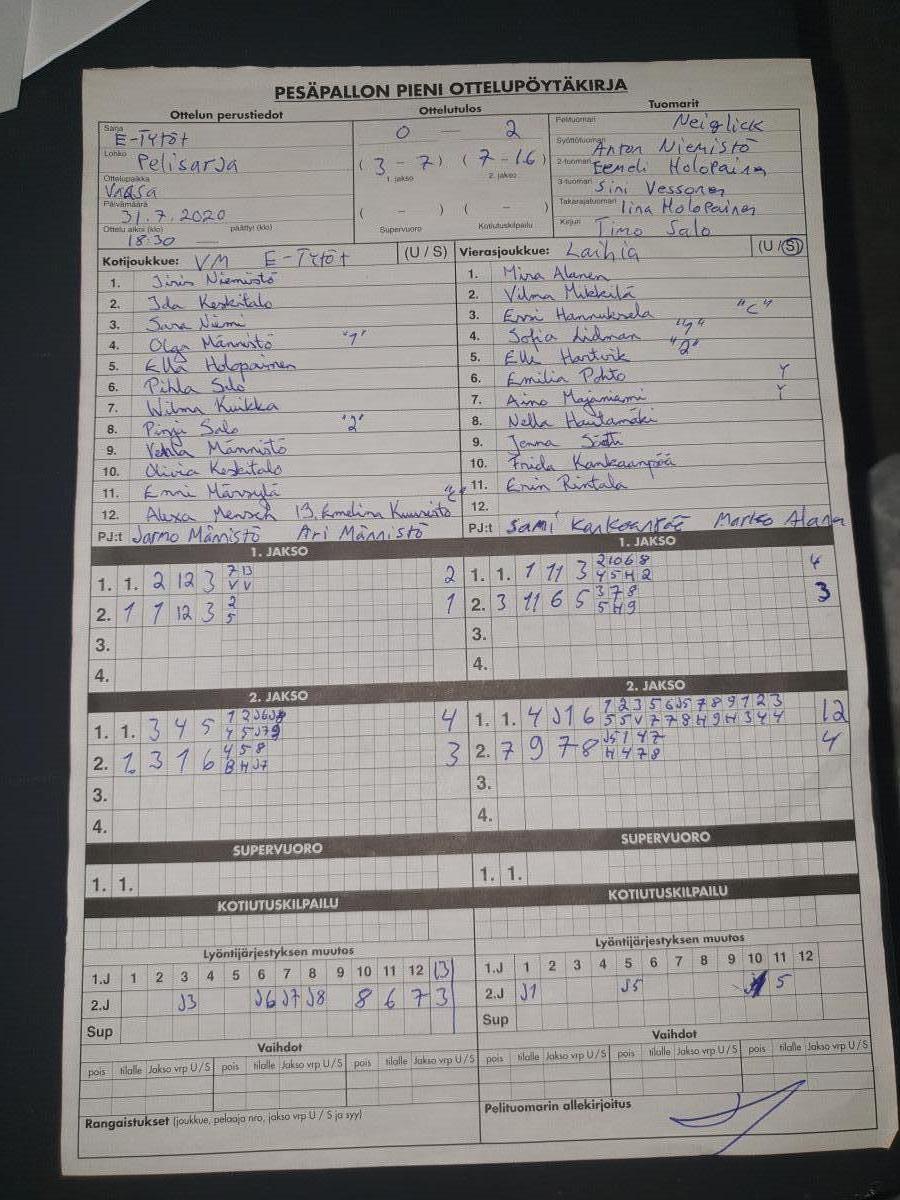 PESÄPALLON PIENI OTTELUPÖYTÄKIRJA
Ottelun perustiedot Ottelutulos Tuomarit
Sarja E-Tytöt
Lohko Pelisarja
Ottelupaikka Vaasa
Päivämäärä 31.7.2020
Ottelu alkoi (klo) 18:30 päättyi (klo)
0 — 2
(3 - 7) (7 - 16)
1. jakso 2. jakso
( - ) ( - )
Supervuoro Kotiutuskilpailu
Pelituomari Neiglick
Syöttötuomari Anton Niemistö
2-tuomari Eemeli Holopainen
3-tuomari Sini Vessonen
Takarajatuomari Iina Holopainen
Kirjuri Timo Salo
Kotijoukkue: VM E-Tytöt (U / S)
1. Niemistö
2. Ida Keskitalo
3. Sara Niemi
4. Olga Männistö "1"
5. Ella Holopainen
6. Pihla Salo
7. Wilma Kuikka
8. Pinja Salo "2"
9. Männistö
10. Olivia Keskitalo
11. Enni
12. Alexa Mensch 13. Emelina Kuusistö
PJ:t Jarmo Männistö Ari Männistö
Vierasjoukkue: Laihia (U / S)
1. Mira Alanen
2. Vilma Mikkilä
3. Essi Hannuksela "C"
4. Sofia Lidman "1"
5. Elli Hartvik "2"
6. Emilia Pohto Y
7. Aino Majaniemi Y
8. Nella Hautamäki
9. Jenna
10. Frida Kankaanpää
11. Erin Rintala
12.
PJ:t Sami Kankaanpää Marko Alanen
1. JAKSO
1. 1. 2 12 3 7 13 2
V V
2. 1 1 12 3 2 1
5
3.
4.
1. JAKSO
1. 1. 1 11 3 2 10 6 8 4
4 5 H 2
2. 3 11 6 5 3 7 8 3
5 H 9
3.
4.
2. JAKSO
1. 1. 3 4 5 1 2 J6 J8 4
4 5 J7 9
2. 1 3 1 6 4 5 8 3
8 H J7
3.
4.
2. JAKSO
1. 1. 4 J1 6 1 2 3 5 6 J5 7 8 9 1 2 3 12
5 5 V 7 7 8 H 9 H 3 4 4
2. 7 9 7 8 J5 1 4 7 4
H 4 7 8
3.
4.
SUPERVUORO
1. 1.
SUPERVUORO
1. 1.
KOTIUTUSKILPAILU
KOTIUTUSKILPAILU
Lyöntijärjestyksen muutos
1.J 1 2 3 4 5 6 7 8 9 10 11 12 13
2.J J3 J6 J7 J8 8 6 7 3
Sup
Lyöntijärjestyksen muutos
1.J 1 2 3 4 5 6 7 8 9 10 11 12
2.J J1 J5 5
Sup
Vaihdot
pois tilalle Jakso vrp U / S pois tilalle Jakso vrp U / S pois tilalle Jakso vrp U / S
Vaihdot
pois tilalle Jakso vrp U / S pois tilalle Jakso vrp U / S pois tilalle Jakso vrp U / S
Rangaistukset (joukkue, pelaaja nro, jakso vrp U / S ja syy)
Pelituomarin allekirjoitus